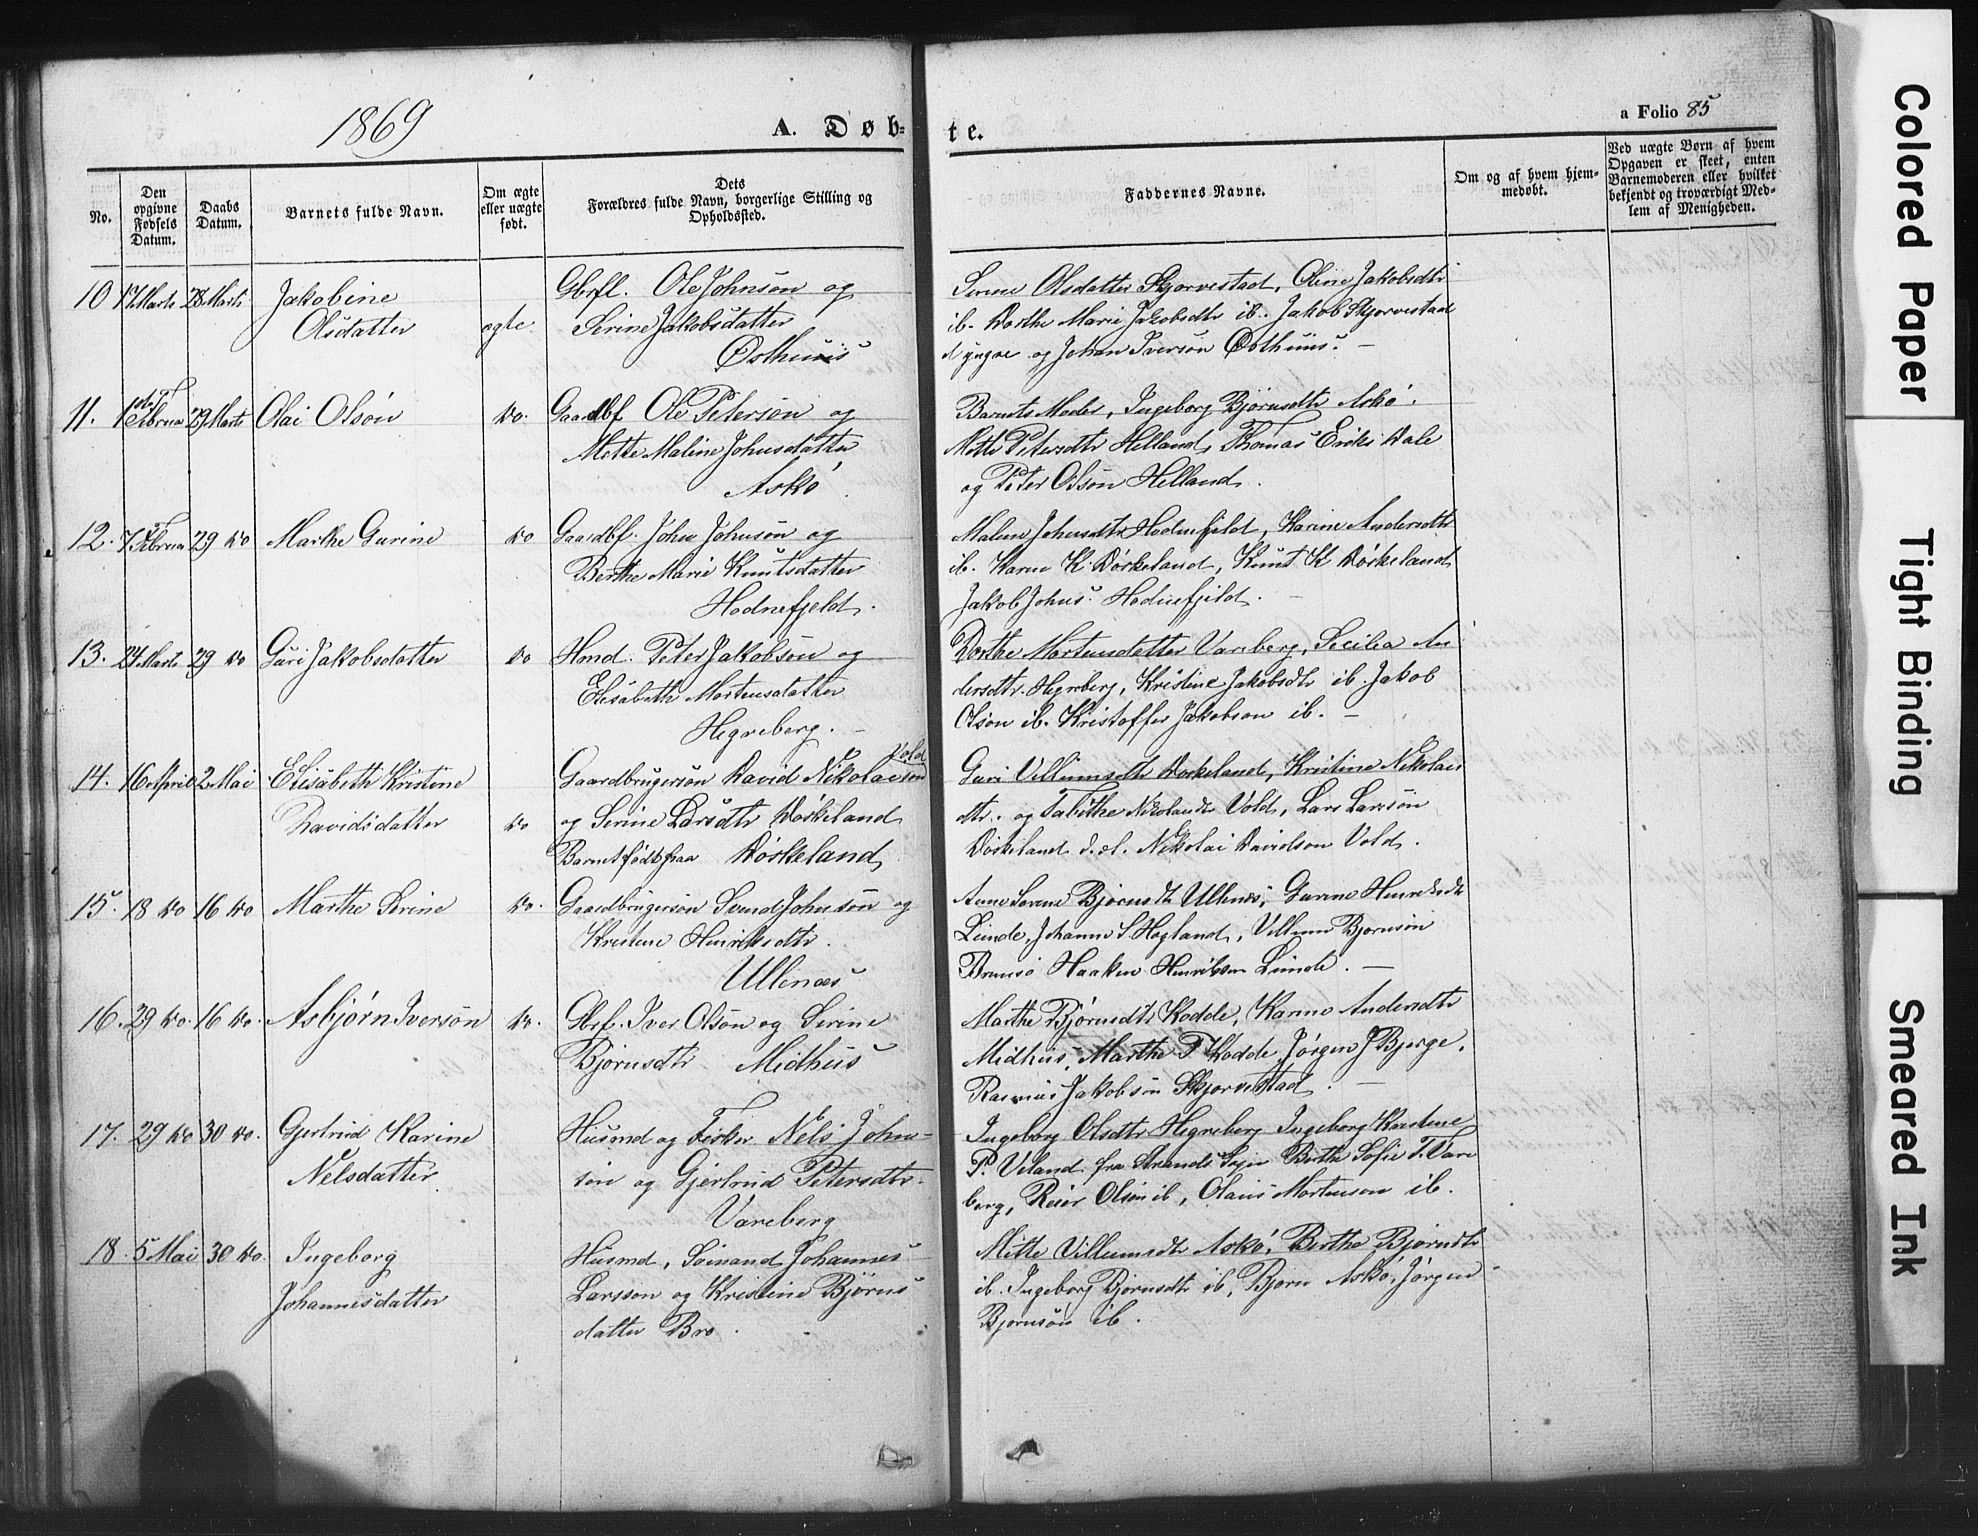 1869
A. Døb-
te.
a Folio 85
No.
Den opgivne Fødsels Datum.
Daabs Datum.
Barnets fulde Navn.
Om ægte eller uægte født.
Dets Forældres fulde Navn, borgerlige Stilling og Opholdssted.
Faddernes Navne.
Om og af hvem hjemmedøbt.
Ved uægte Børn af hvem Opgaven er skeet, enten Barnemoderen eller hvilket bekjendt og troværdigt Medlem af Menigheden.
10 17 Marts 28 Marts Jakobine
Olsdatter
ægte
Gbrfl. Ole Johnsön og
Serine Jakobsdatter
Østhuus
Serine Olsdatter Skjørvestad, Oline Jakobsdtr
ib. Dorthe Marie Jakobsdtr ib. Jakob Skjorvestad
d yngre og Johan Iversön Østhuus. —
11. 1 Februa 29 Marts Olai Olsön
do.
Gaardbf Ole Petersön og
Mette Maline Johnsdatter
Askö.
Barnets Moder, Ingeborg Björnsdtr Askö.
Mette Petersdtr Helland, Thomas Eriks Dale
og Peter Olsön Helland.
12. 7 Februa 29 do Marthe Gurine
do
Gaardbf. John Johnsön og
Berthe Marie Knutsdatter
Hodnefjeld.
Malene Johnsdtr Hodnefjeld, Karine Andersdtr
ib. Karne K. Döskeland, Knut K Döskeland
Jakob Johns. Hodnefjeld. —
13. 24 Marts 29 do Guri Jakobsdatter
do
Hmd. Peter Jakobsön og
Elisabeth Mortensdatter
Hegreberg. —
Dorthe Mortensdatter Vareberg, Secilia An
dersdtr. Hegreberg, Kristine Jakobsdtr ib. Jakob
Olsön ib. Kristoffer Jakobson ib. —
14. 16 April 2 Mai Elisabeth Kristine
Davidsdatter
do
Vold
Gaardbrugersön David Nikolaisön
og Serine Larsdtr Döskeland
Barnet født fraa Döskeland
Guri Villumsdtr Döskeland, Kristine Nikolais
dtr. og Tabithe Nikolaisdtr Vold, Lars Larssön
Döskeland d. æl. Nikolai Davidson Vold.
15. 18 do 16 do Marthe Serine
do.
Gaardbrugersön Svend Johnsön og
Kristine Henriksdtr.
Ullenæs
Anne Serene Bjørnsdtr Ullenes, Gurine Henriksdtr
Lunde, Johanne S. Hagland, Villum Bjornsön
Bremsö Haaken Henriksen Lunde. —
16. 29 do. 16 do. Asbjørn Iversön
do.
Gbrf. Iver Olsön og Serine
Björnsdtr Midhus
Marthe Björnsdtr Kodde, Karine Andersdtr
Midhus, Marthe P Kodde, Jørgen J Bjerge,
Rasmus Jakobsön Skjorvestad. —
17. 29 do 30 do. Gjertrud Karine
Nelsdatter
Husmd og Fisker Nels John-
sön og Gjertrud Petersdtr.
Vareberg
Ingeborg Olsdtr Hegreberg Ingeborg Kristine
P. Veland fra Strands Sogn Berthe Sofie T. Vare
berg, Reier Olsön ib, Olaus Mortenson ib.
18. 5 Mai 30 do. Ingeborg
Johannesdatter
Husmd, Sömand Johannes
Larsson og Kristine Björns
datter Bro.
Mette Villumsdtr Askö, Berthe Bjørnsdtr
ib. Ingeborg Bjornsdtr ib, Bjorn Askö, Jørgen
Bjornsön ib.
Colored Paper
Tight Binding
Smeared Ink